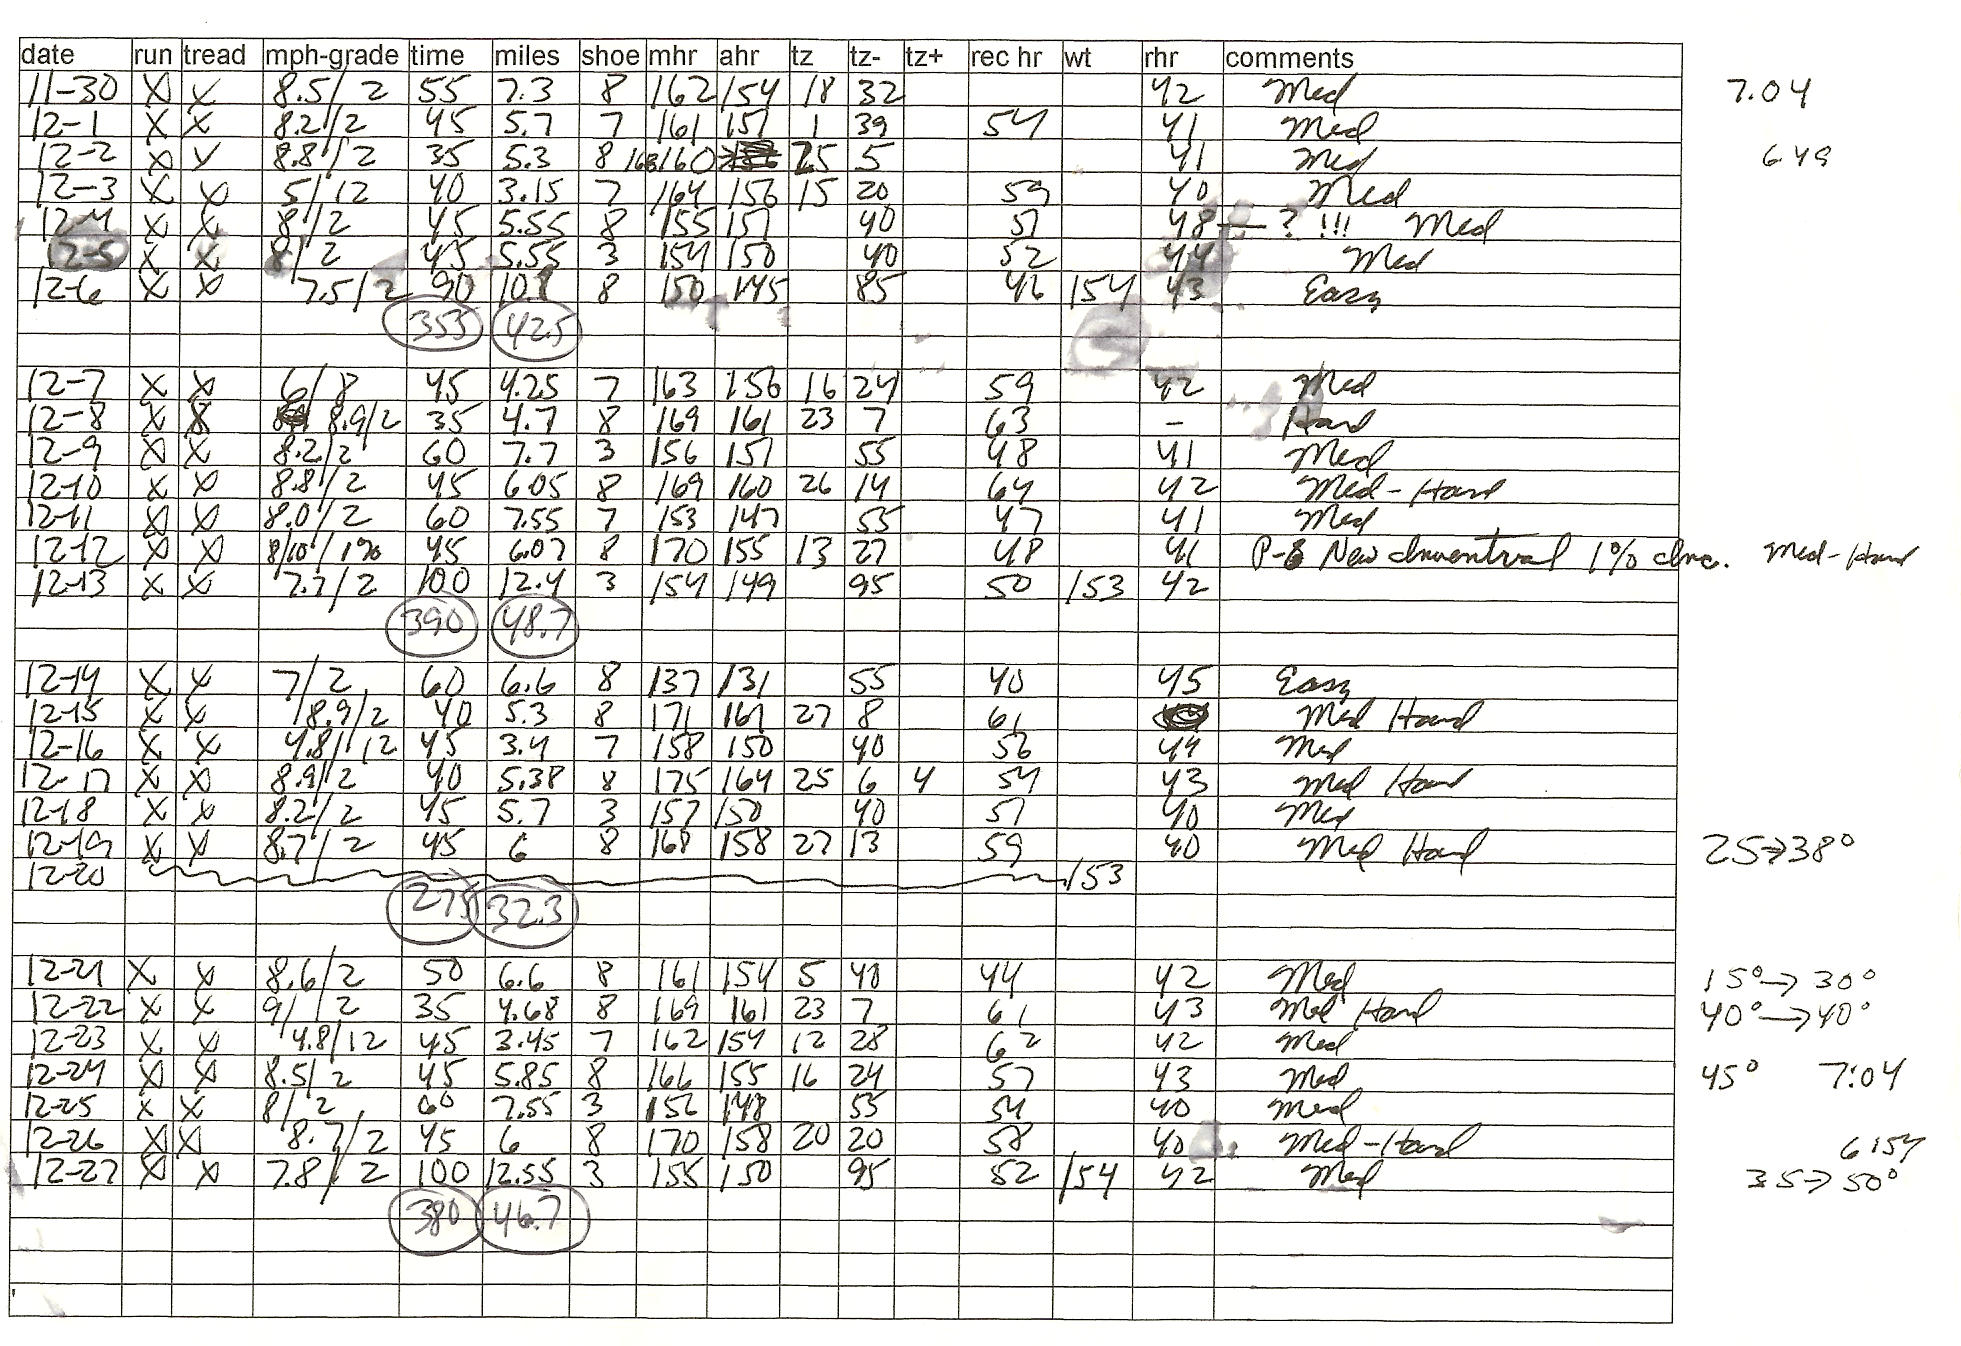 date run tread mph-grade time miles shoe mhr ahr tz tz- tz+ rec hr wt rhr comments
11-30 X X 8.5/2 55 7.3 8 162 154 18 32 42 Med 7.04
12-1 X X 8.2/2 45 5.7 7 161 151 1 39 54 41 Med
12-2 X X 8.8/2 35 5.3 8 168 160 25 5 41 Med 6 49
12-3 X X 5/12 40 3.15 7 164 156 15 20 59 40 Med
12-4 X X 8/2 45 5.55 8 155 151 40 51 48 — ? !!! Med
12-5 X X 8/2 45 5.55 3 154 150 40 52 44 Med
12-6 X X 7.5/2 90 8 150 145 85 46 154 43 Easy
353 42.5
12-7 X X 6/8 45 4.25 7 163 156 16 24 59 42 Med
12-8 X X 8.9/2 35 4.7 8 169 161 23 7 63 - Hard
12-9 X X 8.2/2 60 7.7 3 156 151 55 48 41 Med
12-10 X X 8.8/2 45 6.05 8 169 160 26 14 64 42 Med-Hard
12-11 X X 8.0/2 60 7.55 7 153 147 55 47 41 Med
12-12 X X 8/10/1% 45 6.07 8 170 155 13 27 48 41 New 1% Med-Hard
12-13 X X 7.7/2 100 12.4 3 154 149 95 50 153 42
390 48.7
12-14 X X 7/2 60 6.6 8 137 131 55 40 45 Easy
12-15 X X 8.9/2 40 5.3 8 171 161 27 8 61 Med Hard
12-16 X X 4.8/12 45 3.4 7 158 150 40 56 44 Med
12-17 X X 8.9/2 40 5.38 8 175 164 25 6 4 54 43 Med Hard
12-18 X X 8.2/2 45 5.7 3 157 150 40 57 40 Med
12-19 X X 8.7/2 45 6 8 168 158 27 13 59 40 Med Hard 25→38°
12-20 153
275 32.3
12-21 X X 8.6/2 50 6.6 8 161 154 5 40 44 42 Med 15°→30°
12-22 X X 9/2 35 4.68 8 169 161 23 7 61 43 Med Hard 40°→40°
12-23 X X 4.8/12 45 3.45 7 162 154 12 28 62 42 Med
12-24 X X 8.5/2 45 5.85 8 166 155 16 24 57 43 Med 45° 7:04
12-25 X X 8/2 60 7.55 3 156 148 55 54 40 Med
12-26 X X 8.7/2 45 6 8 170 158 20 20 58 40 Med-Hard 6:54
12-27 X X 7.8/2 100 12.55 3 155 150 95 52 154 42 Med 35→50°
380 46.7